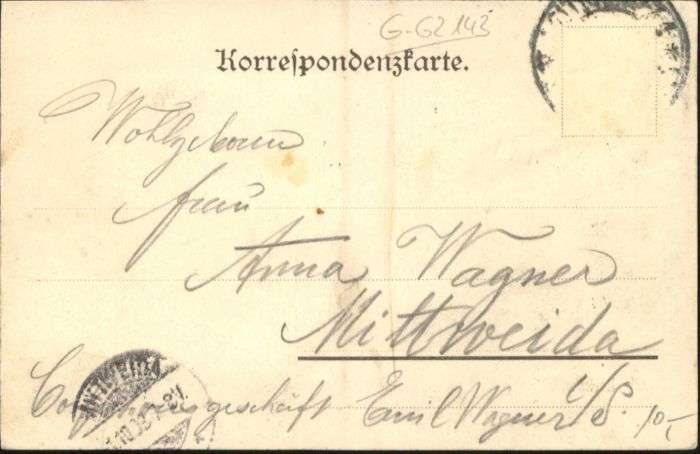 G-G2143
Korrespondenzkarte.
Wohlgeboren
Frau
Anna Wagner
Mittweida
i/S.
geschäft Emil Wagner 10,-
MITTWEIDA